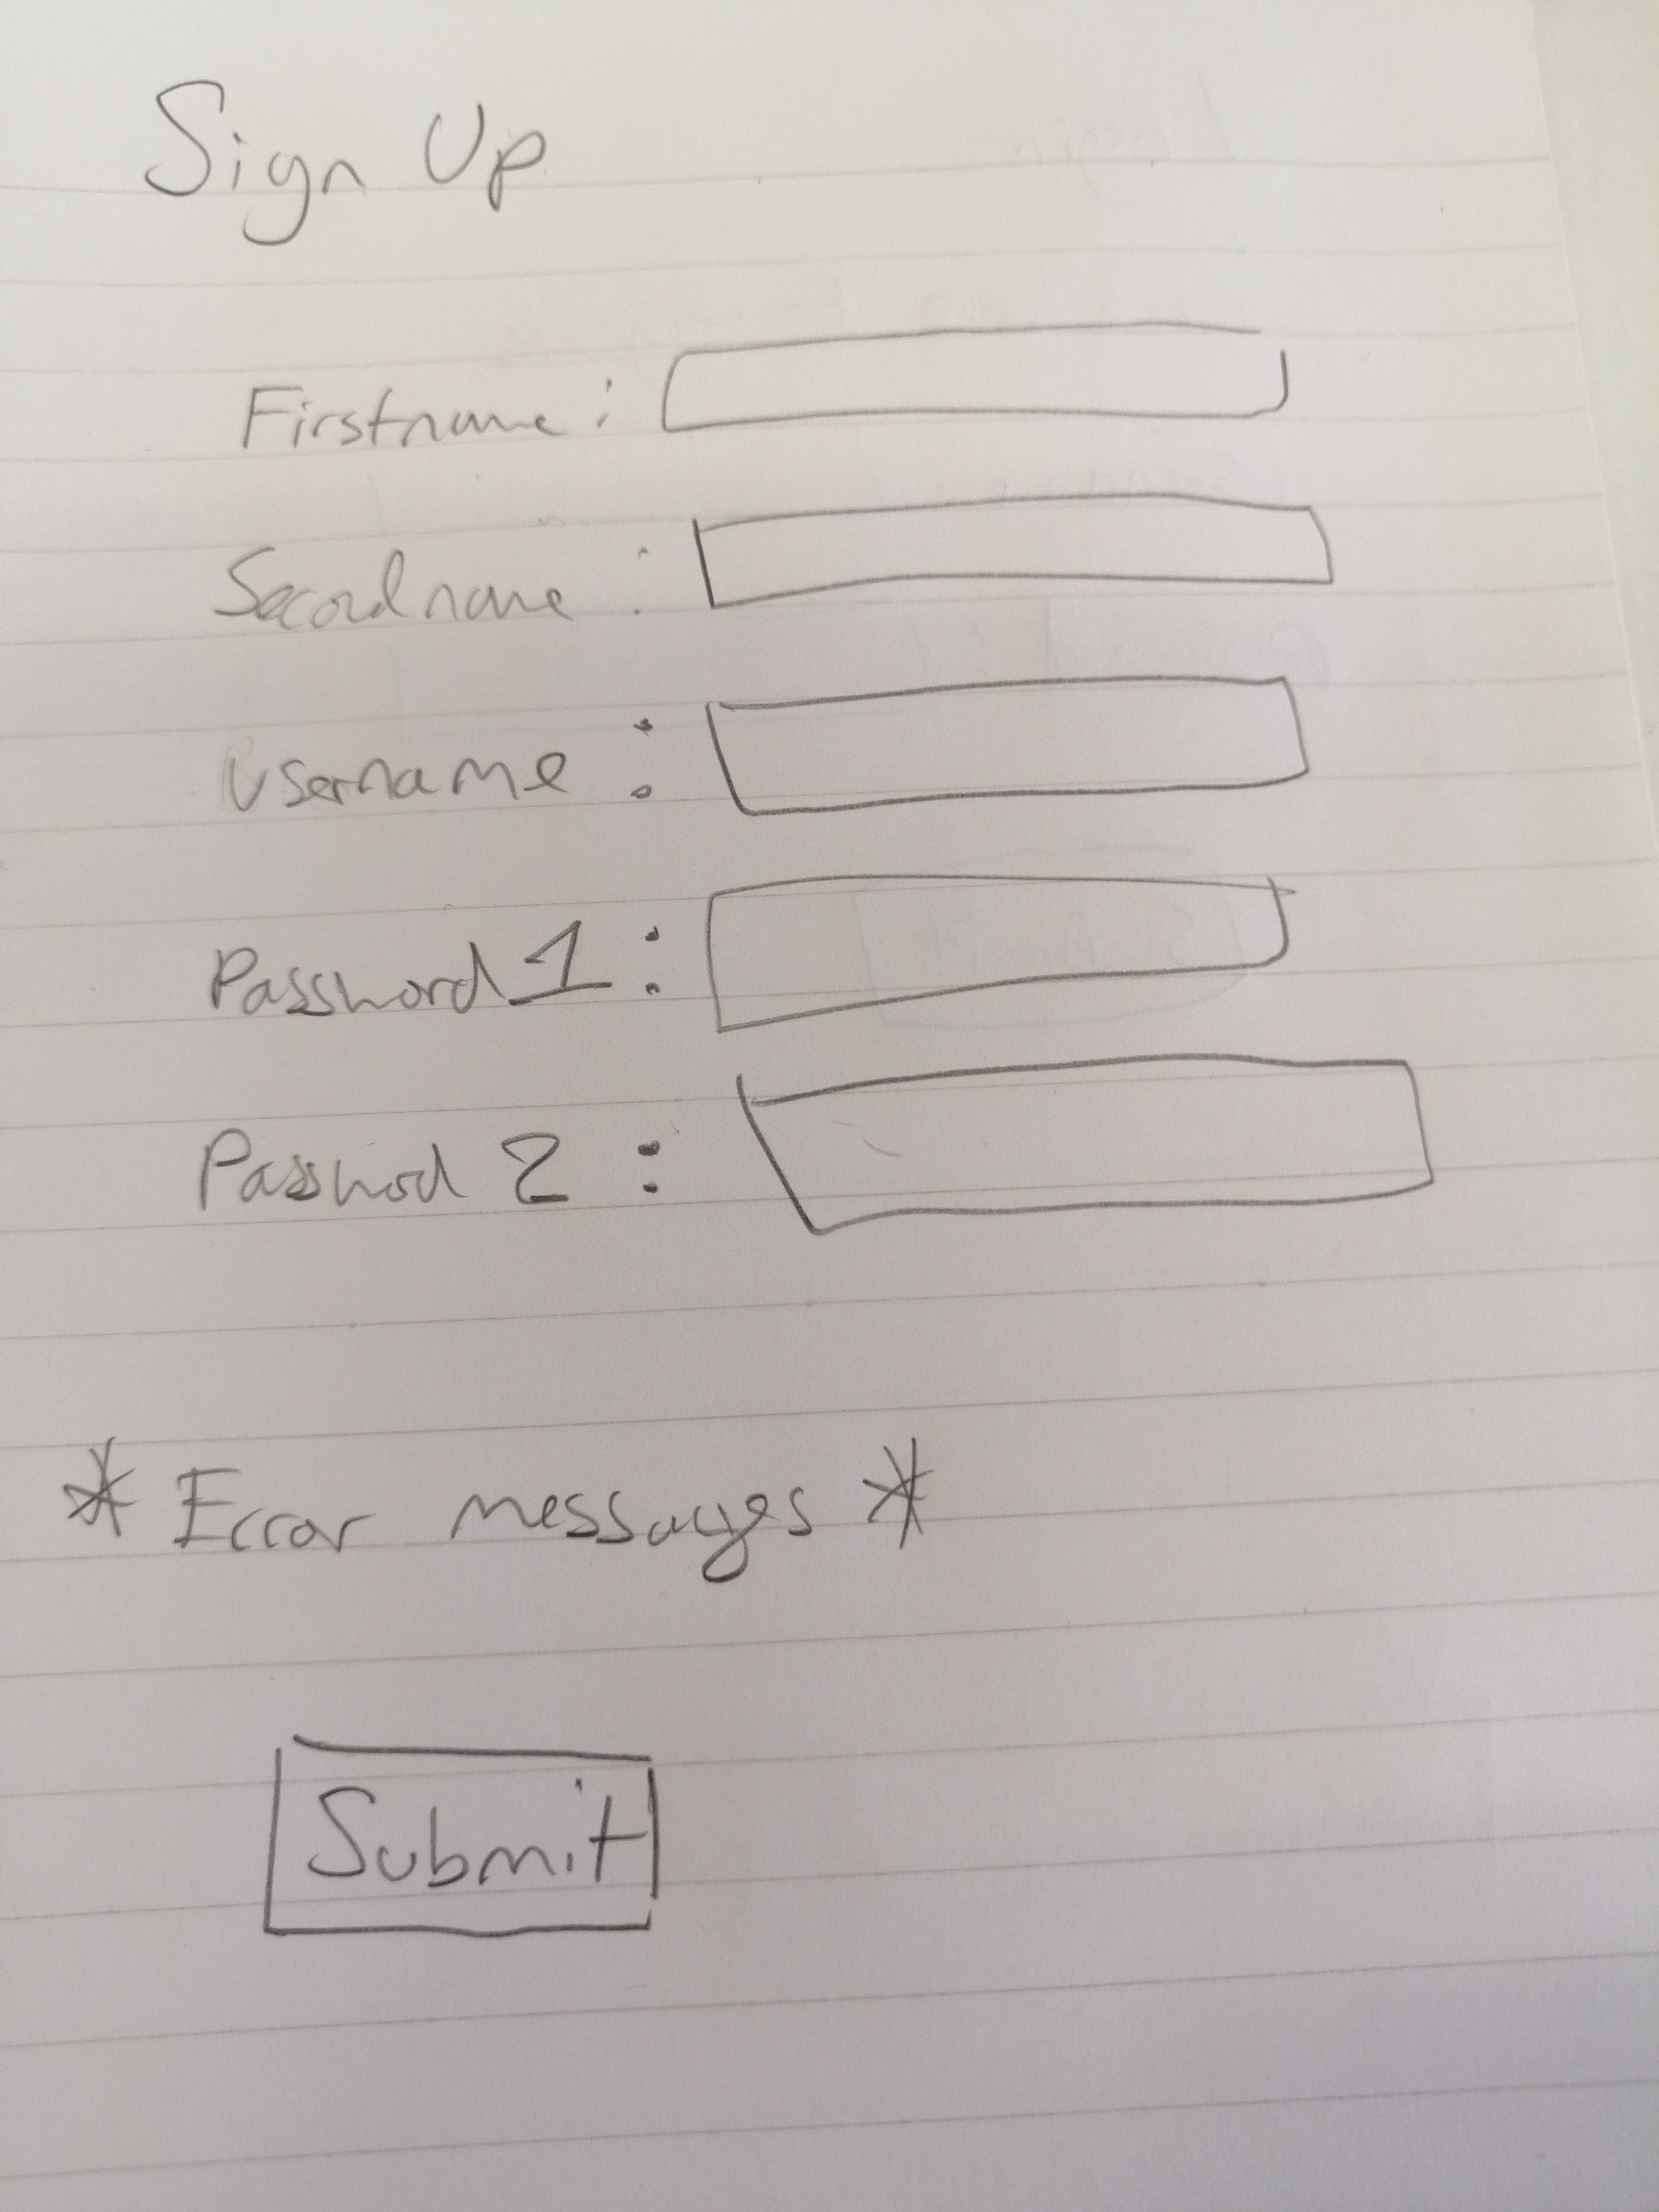 Sign Up
Firstname :
Secondname :
Username :
Password 1 :
Password 2 :
* Error messages *
Submit